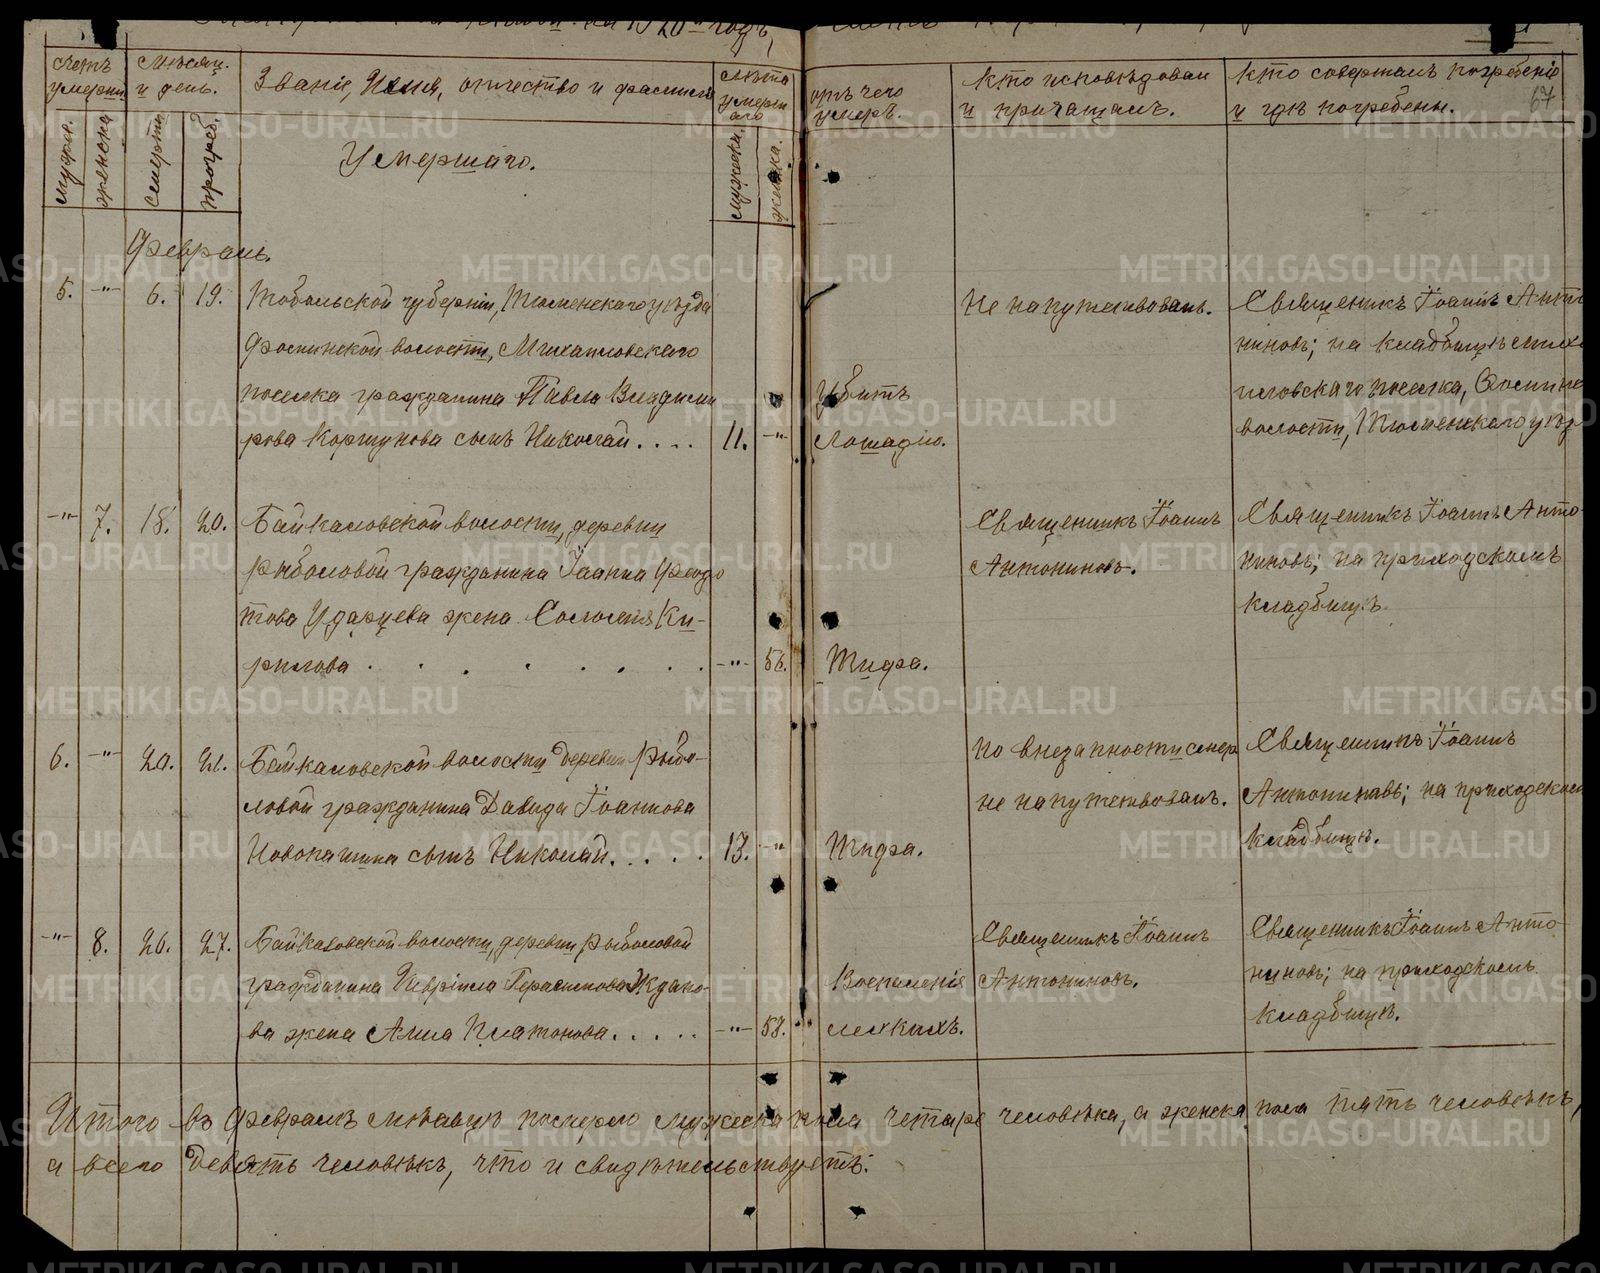 на 1920й годъ,
67
Счетъ умерши.
Мѣсяц. и день.
Званіе, Имя, отчество и фамилія
Умершаго.
Лѣта умерш аго
отъ чего умеръ.
Кто исповѣдовал и причащалъ.
Кто совершалъ погребеніе и гдѣ погребены.
мужск.
женска
смерти
погреб.
мужеска.
женска.
Февраль.
5. -"- 6. 19. Тобольской губерніи, Тюменскаго уѣзда
Фоминской волости, Михайловскаго
поселка гражданина Павла Владими
рова Коршунова сынъ Николай.... 11. -"-
Убитъ
Лошадью.
Не напутствовалъ.
Священикъ Іоаннъ Анто
ниновъ; на кладбищѣ Миха
иловскаго поселка, Фоминс
волости, Тюменскаго уѣз
-"- 7. 18. 20. Байкаловской волости, деревни
Рыболовой гражданина Іоанна Федо
това Ударцева жена Соломія Ки-
рилова . . . . . . . -"- 56.
Тифа.
Священикъ Іоаннъ
Антониновъ.
Священикъ Іоаннъ Анто-
ниновъ; на приходскомъ
кладбищѣ.
6. -"- 20. 21. Байкаловской волости деревни Рыбо-
ловой гражданина Давида Іоаннова
Новопашина сынъ Николай..... 13. -"-
Тифа.
по внезапности смерт
не напутствовалъ.
Священикъ Іоаннъ
Антониновъ; на приходском
кладбищѣ.
-"- 8. 26. 27. Байкаловской волости, деревни Рыболовой
гражданина Гавріила Герасимова Ждано-
ва жена Анна Платонова..... -"- 58.
Воспаленія
легкихъ.
Священикъ Іоаннъ
Антониновъ.
Священикъ Іоаннъ Анто-
ниновъ; на приходскомъ
кладбищѣ.
Итого въ Февралѣ мѣсяцѣ померло мужеска пола четыре человѣка, а женска пола пять человѣкъ,
а всего девять человѣкъ, что и свидѣтельствуетъ:
METRIKI.GASO-URAL.RU